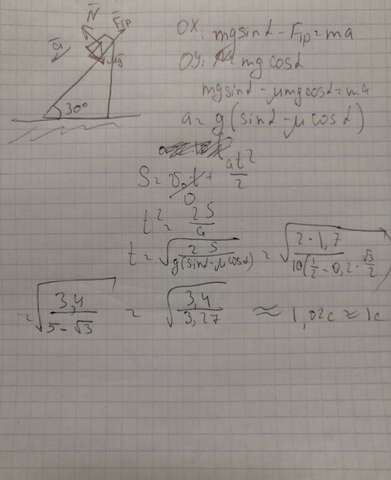 N̄ F̄тр
ā
mḡ
30°
OX: mgsinα - Fтр = ma
OY: N = mgcosα
mgsinα - μmgcosα = ma
a = g(sinα - μcosα)
S = v₀t + at²/2
0
t² = 2S/a
t = √(2S/(g(sinα - μcosα))) = √(2·1,7/(10(1/2 - 0,2·√3/2)))
= √(3,4/(5-√3)) = √(3,4/3,27) ≈ 1,02c ≈ 1c